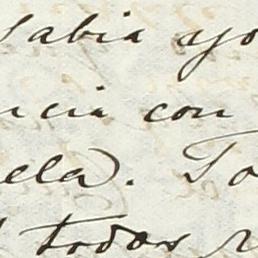 sabia yo
ncia con
ela). To
todos